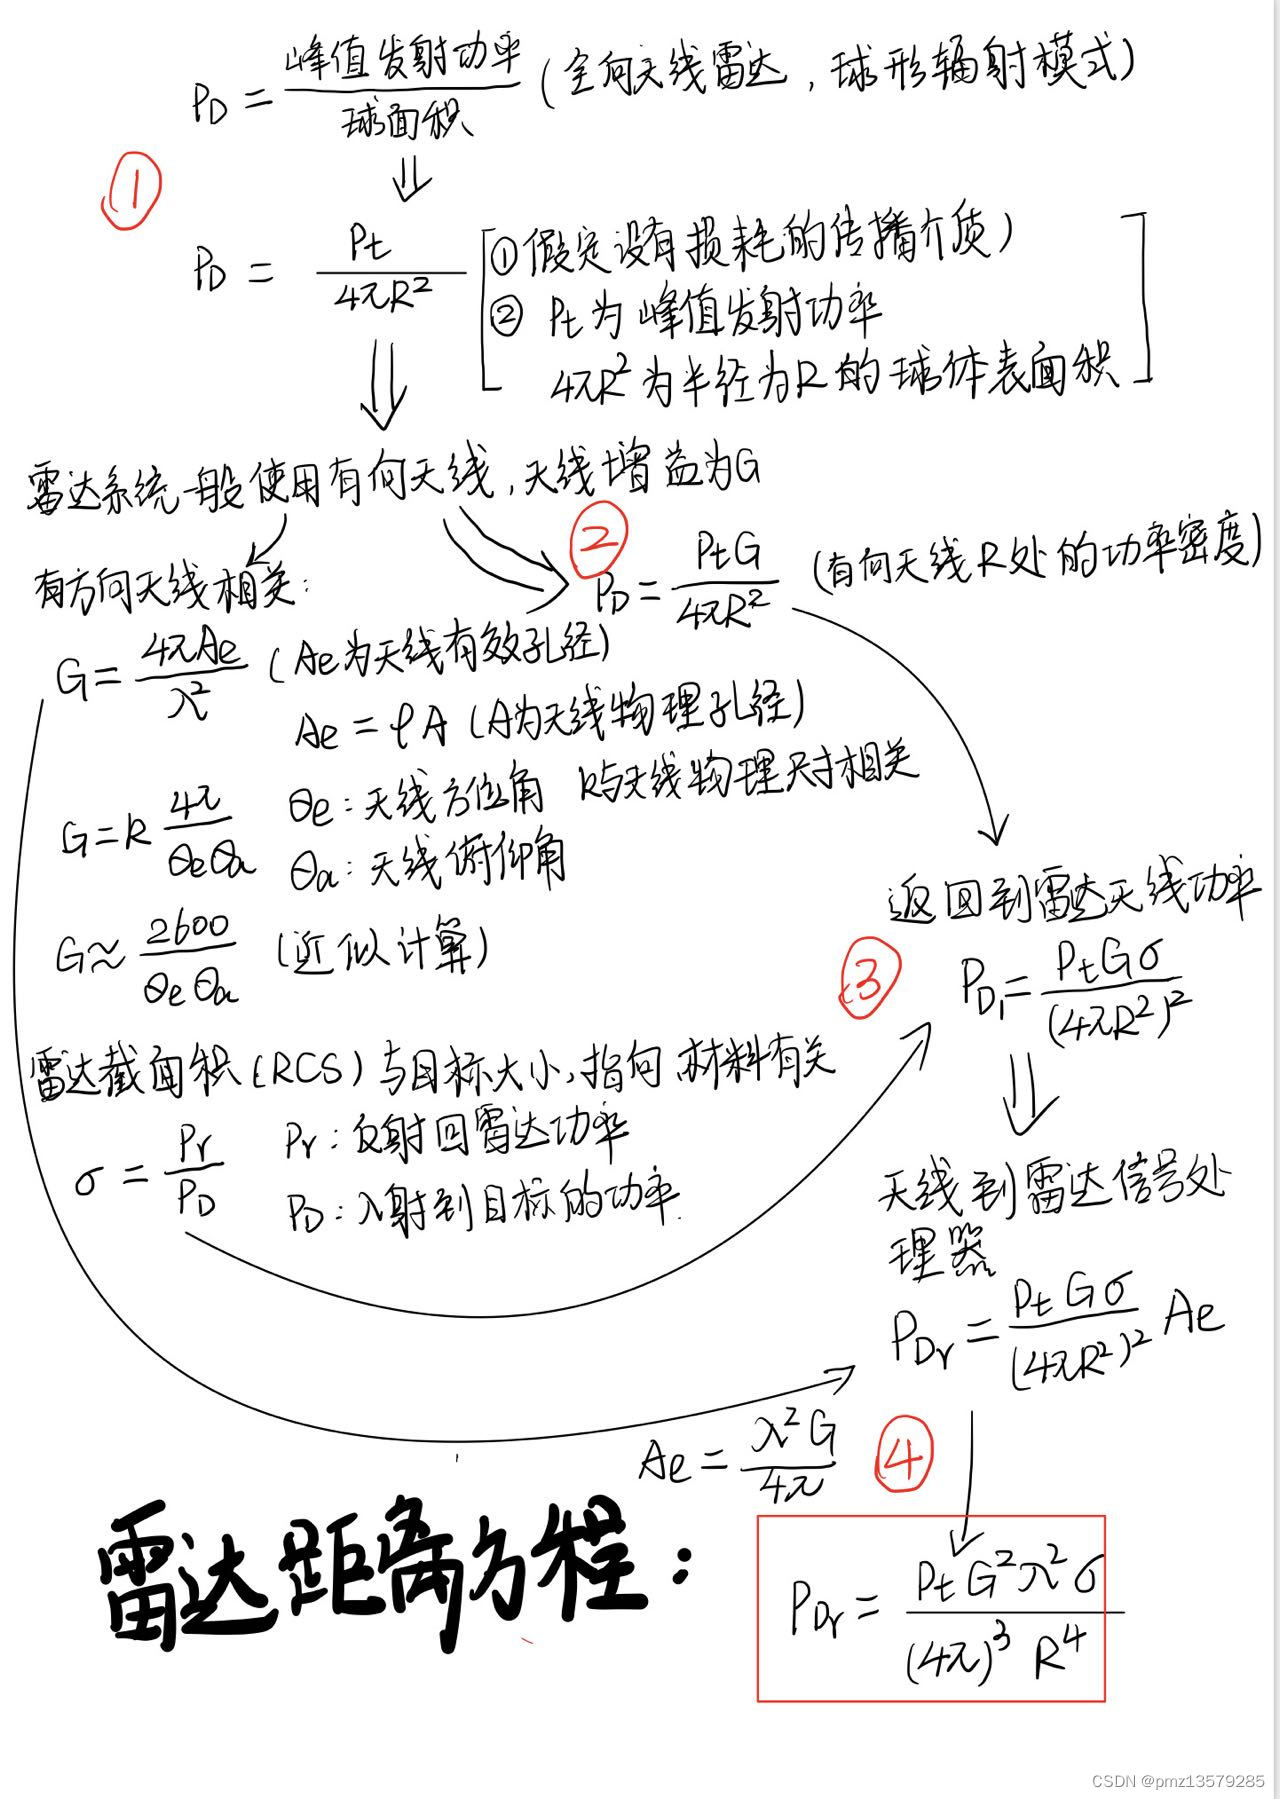 P_D = 峰值发射功率 / 球面积 (全向天线雷达,球形辐射模式)
①
P_D = Pt / 4πR² [①假定没有损耗的传播介质)
② Pt为峰值发射功率
4πR²为半径为R的球体表面积]
雷达系统一般使用有向天线,天线增益为G
②
P_D = PtG / 4πR² (有向天线R处的功率密度)
有方向天线相关:
G = 4πAe / λ² (Ae为天线有效孔径)
Ae = ρA (A为天线物理孔径)
G = k 4π / θeθa
θe:天线方位角 k与天线物理尺寸相关
θa:天线俯仰角
G ≈ 2600 / θeθa (近似计算)
返回到雷达天线功率
③
P_D₁ = PtGσ / (4πR²)²
雷达截面积(RCS)与目标大小,指向,材料有关
σ = Pr / P_D
Pr:反射回雷达功率
P_D:入射到目标的功率.
天线到雷达信号处
理器
P_Dr = PtGσ / (4πR²)² Ae
Ae = λ²G / 4π
④
雷达距离方程:
P_Dr = PtG²λ²σ / (4π)³ R⁴
CSDN @pmz13579285